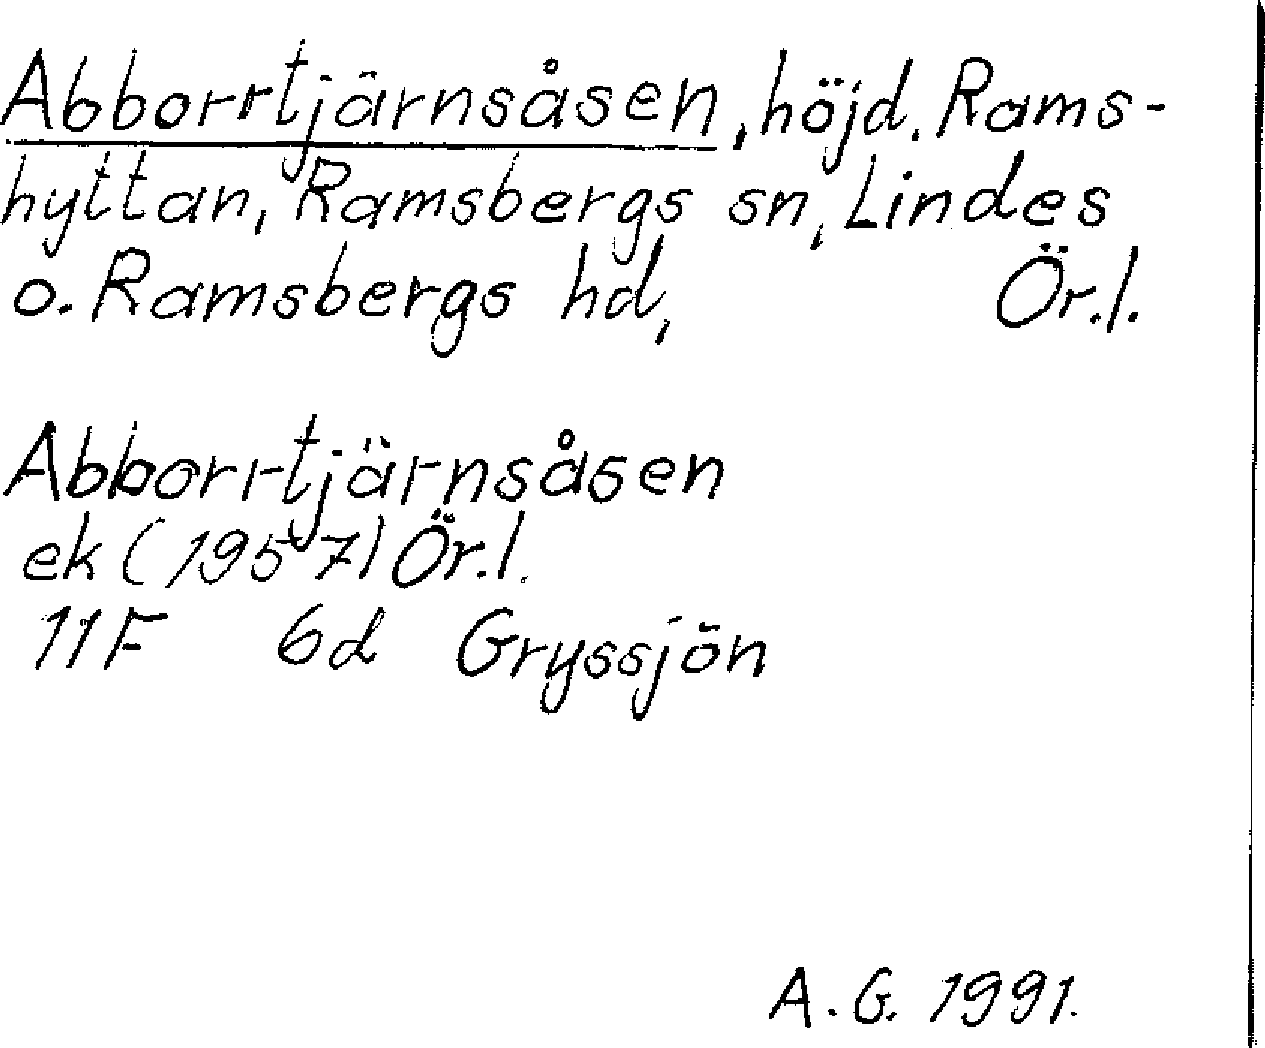 Abborrtjärnsåsen, höjd. Rams-
hyttan, Ramsbergs sn, Lindes
o. Ramsbergs hd, Ör.l.
Abborrtjärnsåsen
ek (1957) Ör.l.
11F 6d Gryssjön
A. G. 1991.